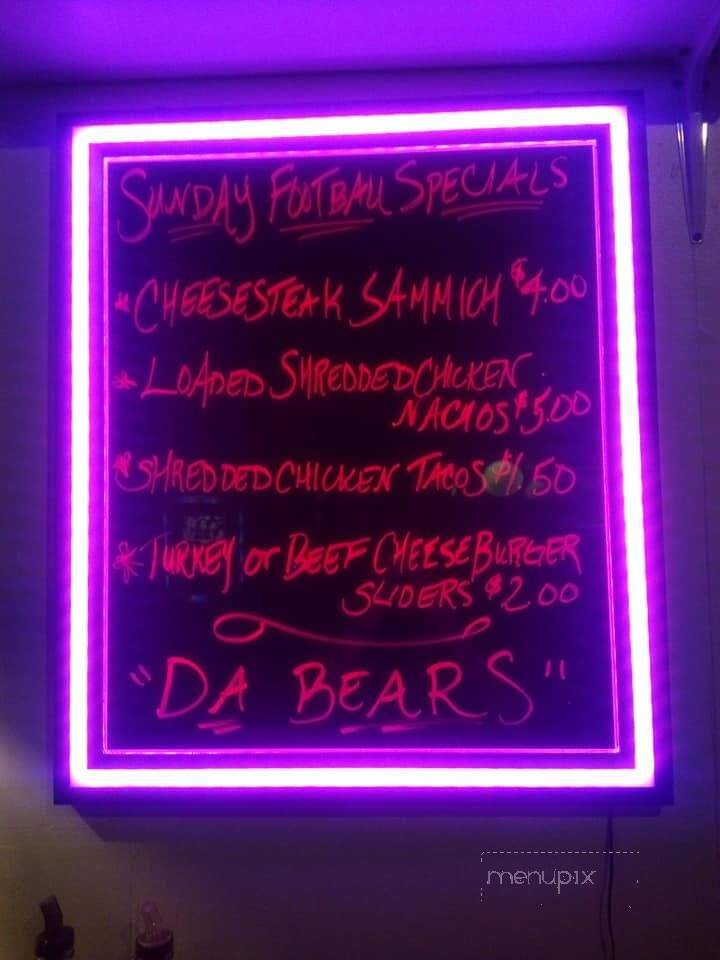 SUNDAY FOOTBALL SPECIALS
* CHEESESTEAK SAMMICH $4.00
* LOADED SHREDDED CHICKEN
NACHOS $5.00
* SHREDDED CHICKEN TACOS $1.50
* TURKEY or BEEF CHEESEBURGER
SLIDERS $2.00
"DA BEARS"
menupix